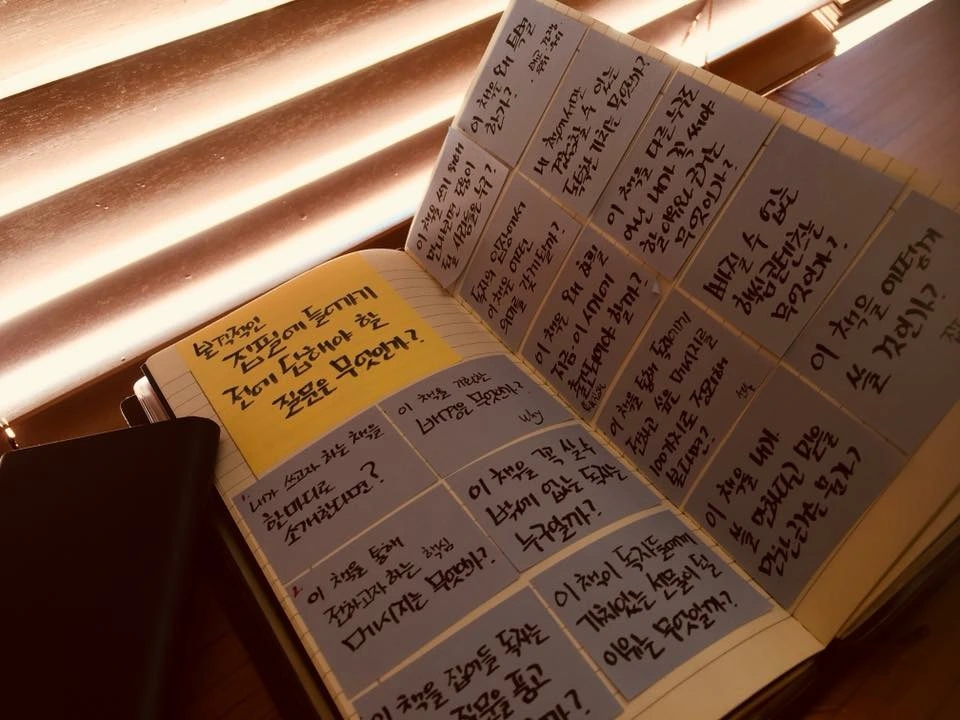 본격적인
집필에 들어가기
전에 답해야 할
질문은 무엇인가?
내가 쓰고자 하는 책을
한마디로
소개한다면?
이 책을 기획한
배경은 무엇인가?
Why
이 책을 통해
전하고자 하는 핵심
메시지는 무엇인가?
이 책을 꼭 살 수
밖에 없는 독자는
누구일까?
이 책을 집어들 독자는
질문을 품고
이 책이 독자들에게
가치있는 선물이 될
이유는 무엇일까?
이 책은 왜 특별
한가?
내 책에서만
경험할 수 있는
독특한 가치는 무엇인가?
이 책을 다른 누구
아닌 내가 꼭 써야
할 이유와 근거는
무엇인가?
빠질 수 없는
핵심콘텐츠는
무엇인가?
이 책은 어떻게
쓸 것인가?
이 책을 쓰기 위해
만나야
될 사람들은 누구?
독자의 입장에서
이 책은 어떤
의미를 갖게될까?
이 책은 왜 하필
지금 이 시기에
출간돼야 할까?
이 책을 통해 독자에게
전하고 싶은 메시지를
100가지로 정리해
본다면?
이 책을 내가
믿을
만한 근거는